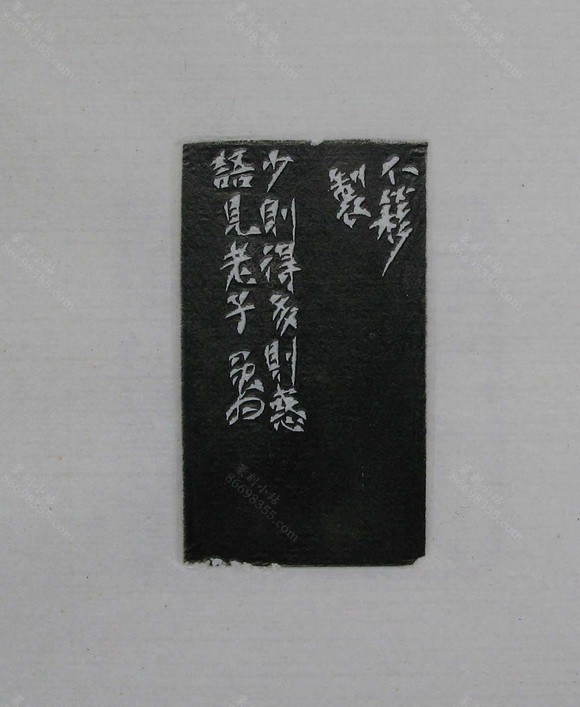 不簃
製
少則得多則惑
語見老子
篆刻小站
86698355.com